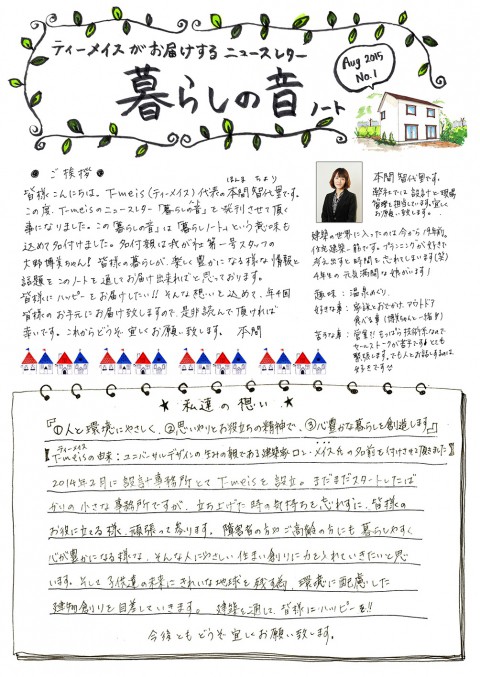 ティーメイスがお届けするニュースレター
暮らしの音ノート
Aug 2015
No.1
● ご挨拶 ●
ほんま ちより
皆様こんにちは。T-meis(ティーメイス)代表の本間智代里です。
この度、T-meisのニュースレター「暮らしの音」を発刊させて頂く
事になりました。この「暮らしの音」は「暮らしノート」という意味も
込めて名付けました。名付親は我が社第一号スタッフの
大野博美ちゃん!皆様の暮らしが、楽しく豊かになる様な情報と
話題をこのノートを通してお届け出来ればと思っております。
皆様にハッピーをお届けしたい!!そんな想いを込めて、年4回
皆様のお手元にお届け致しますので、是非読んで頂ければ
幸いです。これからどうぞ宜しくお願い致します。 本間
本間智代里です。
弊社では設計と現場
管理を担当しています。宜しく
お願い致します。
建築の世界に入ったのは今から19年前。
住宅建築一筋です。プランニングが好きで
考え出すと時間を忘れてしまいます(笑)
4年生の元気満開な娘がいます!
趣味:温泉めぐり。
好きな事:家族とおでかけ、アウトドア
食べる事(博美ちゃんと一緒)
苦手な事:営業!!もっぱら技術系なので
セールストークが苦手ですし とても
緊張します。でも人とお話しするのは
好きです
★ 私達の想い ★
『①人と環境にやさしく、②思いやりとお役立ちの精神で、③心豊かな暮らしを創造します』
ティーメイス
【T-meisの由来:ユニバーサルデザインの生みの親である建築家ロン・メイス氏の名前を付けさせて頂きました】
2014年2月に設計事務所としてT-meisを設立。まだまだスタートしたば
かりの小さな事務所ですが、立ち上げた時の気持ちを忘れずに、皆様の
お役に立てる様、頑張って参ります。障害者の方やご高齢の方にも暮らしやすく
心が豊かになる様な、そんな人にやさしい住まい創りに力を入れていきたいと思
います。そして子供達の未来にきれいな地球を残す為、環境に配慮した
建物創りを目差していきます。建築を通して、皆様にハッピーを!!
今後ともどうぞ宜しくお願い致します。